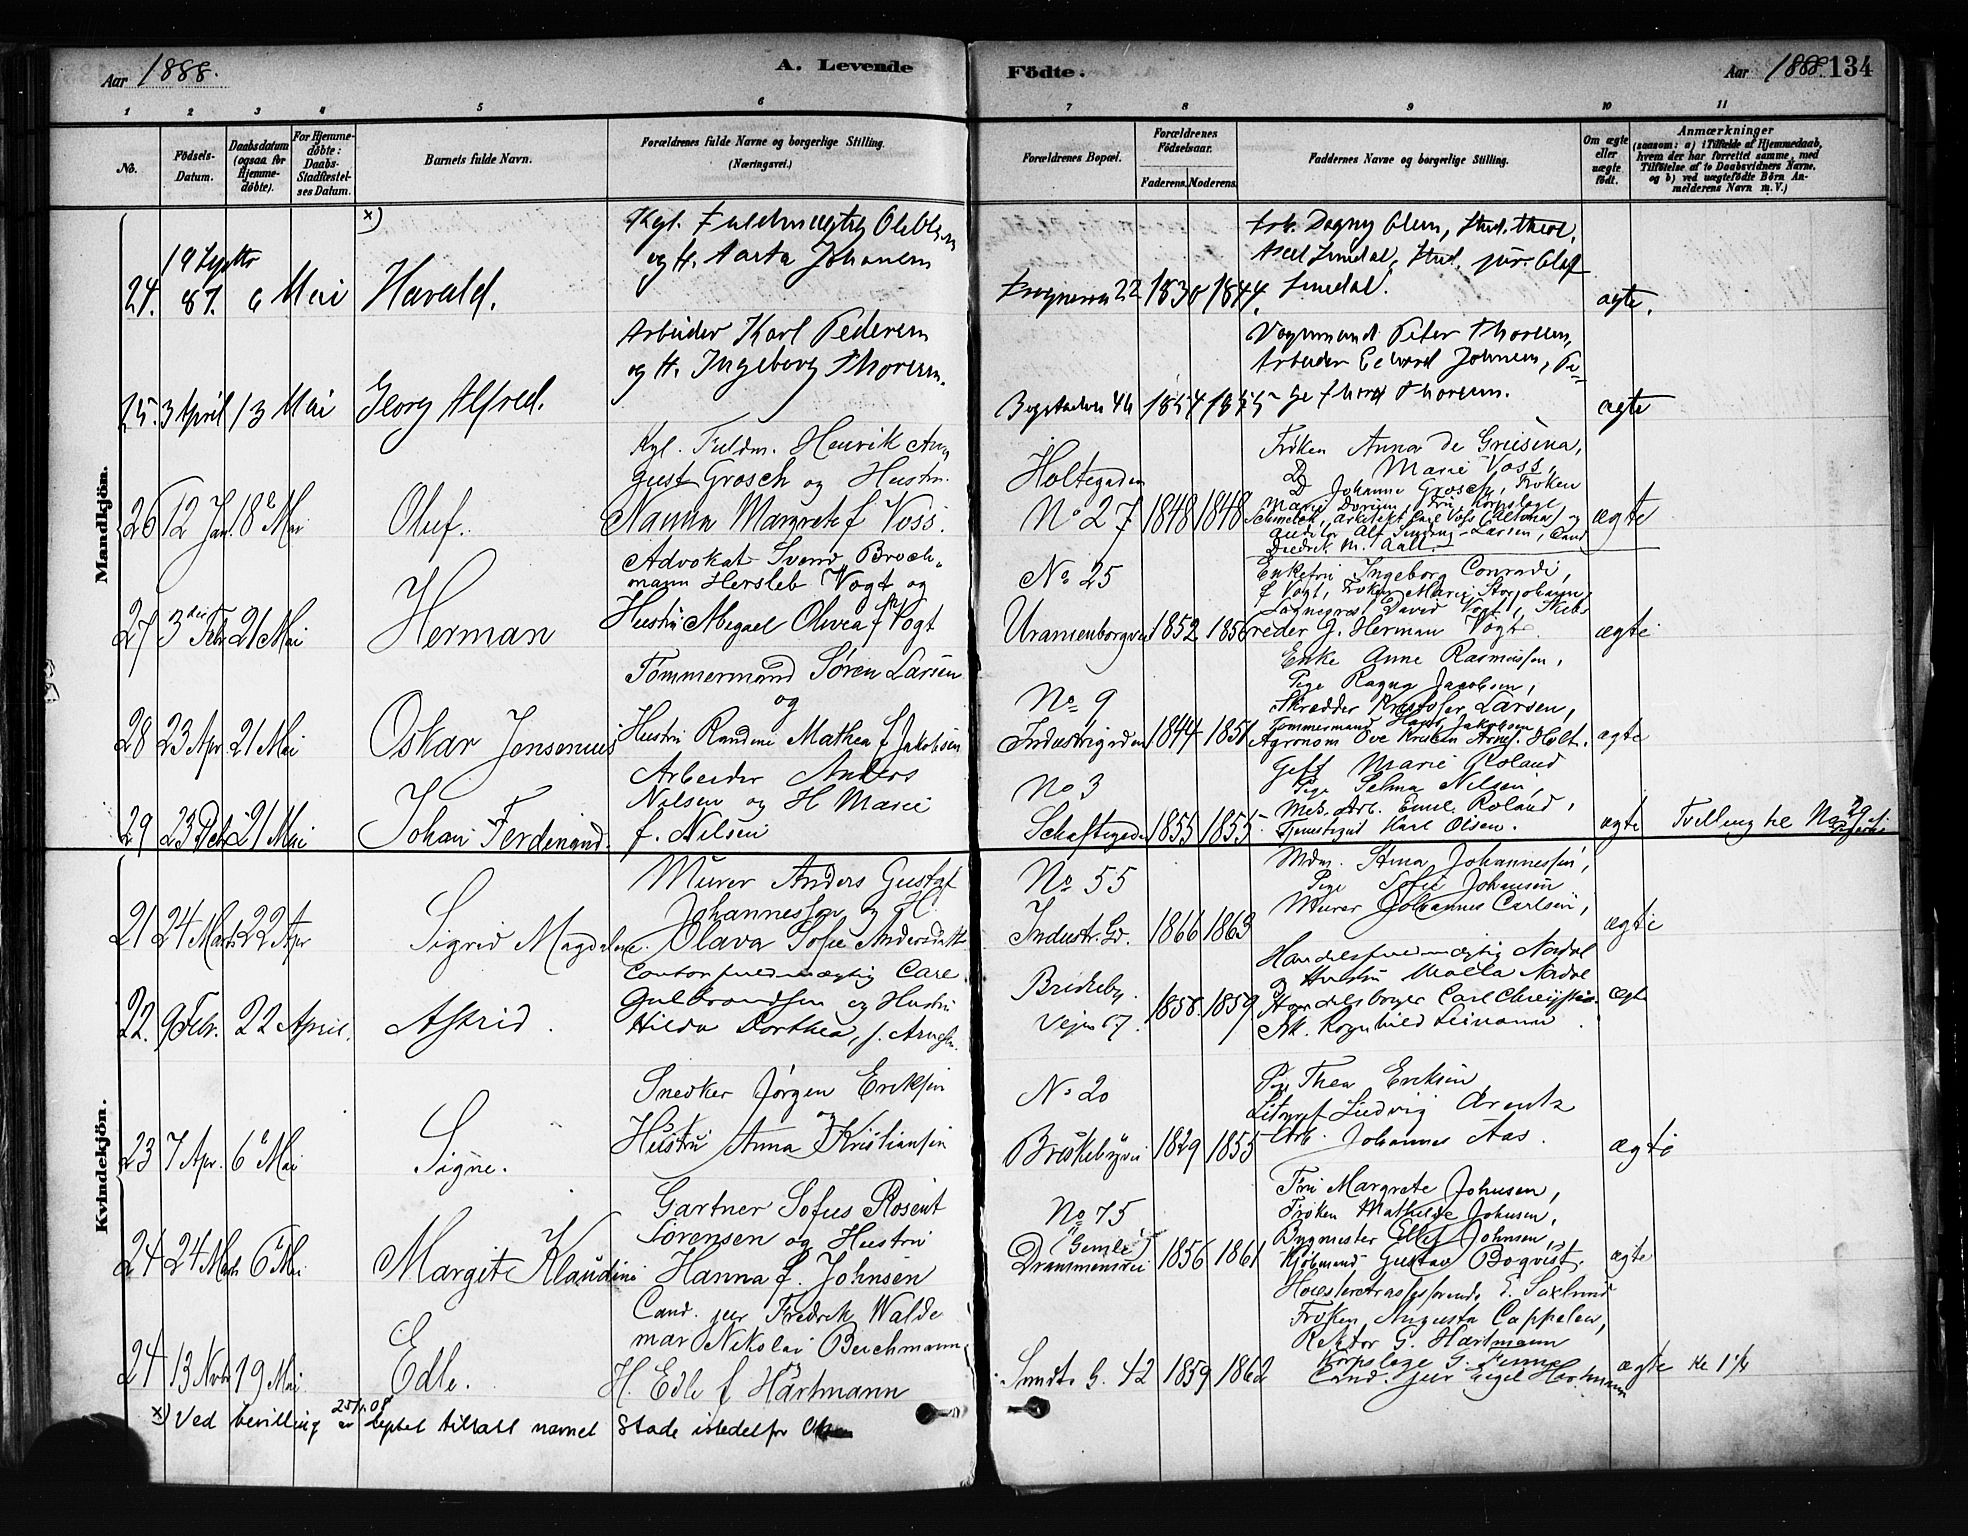 Aar 1888.
A. Levende Födte.
Aar 1888. 134
1 2 3 4 5 6 7 8 9 10 11
No.
Födsels-Datum.
Daabsdatum (ogsaa for Hjemme-døbte).
For Hjemme-døbte: Daabs-Stadfæstel-ses Datum.
Barnets fulde Navn.
Forældrenes fulde Navne og borgerlige Stilling. (Næringsvei.)
Forældrenes Bopæl.
Forældrenes Födselsaar.
Faderens. Moderens.
Faddernes Navne og borgerlige Stilling.
Om ægte eller uægte født.
Anmærkninger (saasom: a) i Tilfælde af Hjemmedaab, hvem der har forrettet samme, med Tilföielse af to Daabsvidners Navne, og b) ved uægtefödte Börn An-melderens Navn m. V.)
Mandkjön.
x)
24. 19 Septbr 87. 6 Mai Harald.
Kgl. Fuldmægtig Ole Olsen
og H. Marta Johansen
22 1830 1844
Dagny Olsen, Stud. theol.
Axel Lindal, Stud. jur. Olaf
Lindal.
ægte.
25. 3 April 13 Mai Georg Alfred.
Arbeider Karl Pedersen
og H. Ingeborg Thoresen.
Bogstadvn 46 1854 1855
Vognmand Peter Thoresen,
Arbeider Edvard Johnsen, Pi-
ge Thora Thoresen.
ægte
26 12 Jan. 18e Mai Oluf.
Kgl. Fuldm. Henrik Au-
gust Grosch og Hustru
Nanna Margrete f Voss.
Holtegaden
No 27 1848 1848
Frøken Anna de Greisina,
D Marie Voss,
D Johanne Grosch, Frøken
Schmelck, Arkitekt Carl Voss (Altona) og
Auditør Alf Sinding-Larsen, Cand
Diedrik M. Aall.
ægte
27 3die Febr 21 Mai Herman
Advokat Svend Broch-
mann Hersleb Vogt og
Hustru Abigael Olivea f Vogt
No 25
Uranienborgvei 1852 1856
Enkefru Ingeborg Conradi,
f Vogt, Frøken Marie Storjohann,
Sognepræst David Vogt, Skibs-
reder J. Herman Vogt.
ægte
28 23 Apr. 21 Mai Oskar Jensenius
Tømmermand Søren Larsen
og
Hustru Randine Mathea f Jakobsen
No 9
Industrigaden 1844 1851
Enke Anne Rasmussen,
Pige Ragna Jacobsen,
Skrædder Kristofer Larsen,
Tømmermand Hans Jakobsen
Agronom Ove Kristian Arnes. Holt.
ægte
29 23 Febr. 21 Mai Johan Ferdinand.
Arbeider Anders
Nilsen og H Marie
f. Nilsen
No 3
Schaftegaden 1855 1855
Gift Marie Roland
Pige Selma Nilsen,
Mek. Arb. Emil Roland,
Tjenestegut Karl Olsen.
ægte Tvilling til No 29
Kvindekjön.
21 24 Marts 22 Apr Sigrid Magdalene.
Murer Anders Gustaf
Johannesson og H.
Olava Sofie Andersdatter
No 55
Industr. Gd. 1866 1863
Mdm. Stina Johannesson,
Pige Sofie Johansen
Murer Johannes Carlsen,
ægte
22. 9 Febr. 22 April. Astrid.
Contorfuldmægtig Carl
Gulbrandsen og Hustru
Hilda Dorthea, f. Arnesen.
Briskeby-
Vejen 67 1858. 1859
Handelsfuldmægtig Nordal
og Hustru Molla Nordal
Handelsborger Carl Christians.
Frk. Ragnhild Leimann
ægte
23 7 Apr. 6e Mai Signe.
Snedker Jørgen Eriksen
og
Hustru Anna f Kristiansen
No 20
Briskebyvei 1829 1855
Pg Thea Eriksen
Litograf Ludvig Arentz
Arb. Johannes Aas.
ægte
24 24 Marts 6e Mai Margit Klaudine
Gartner Sofus Rosent
Sørensen og Hustru
Hanna f. Johnsen
No 75
(Gimle)
Drammensvei 1856 1861
Fru Margrete Johnsen,
Frøken Mathilde Johnsen,
Bygmester Ellef Johnsen,
Kjøbmand Gustav Boqvist.
ægte
24 13 Novbr 19 Mai Edle.
Cand. jur Fredrik Walde
mar Nikolai Beichmann,
H. Edle f Hartmann
Smidts G. 42 1859 1862
Høiesteretsassessorende E. Saxlund
Frøken Augusta Cappelen,
Rektor G. Hartmann
Korpslæge G.
Cand. jur Egil Hartmann
ægte
x) Ved bevilling av 25/11.08 tillatt navnet Stade istedetfor Olsen